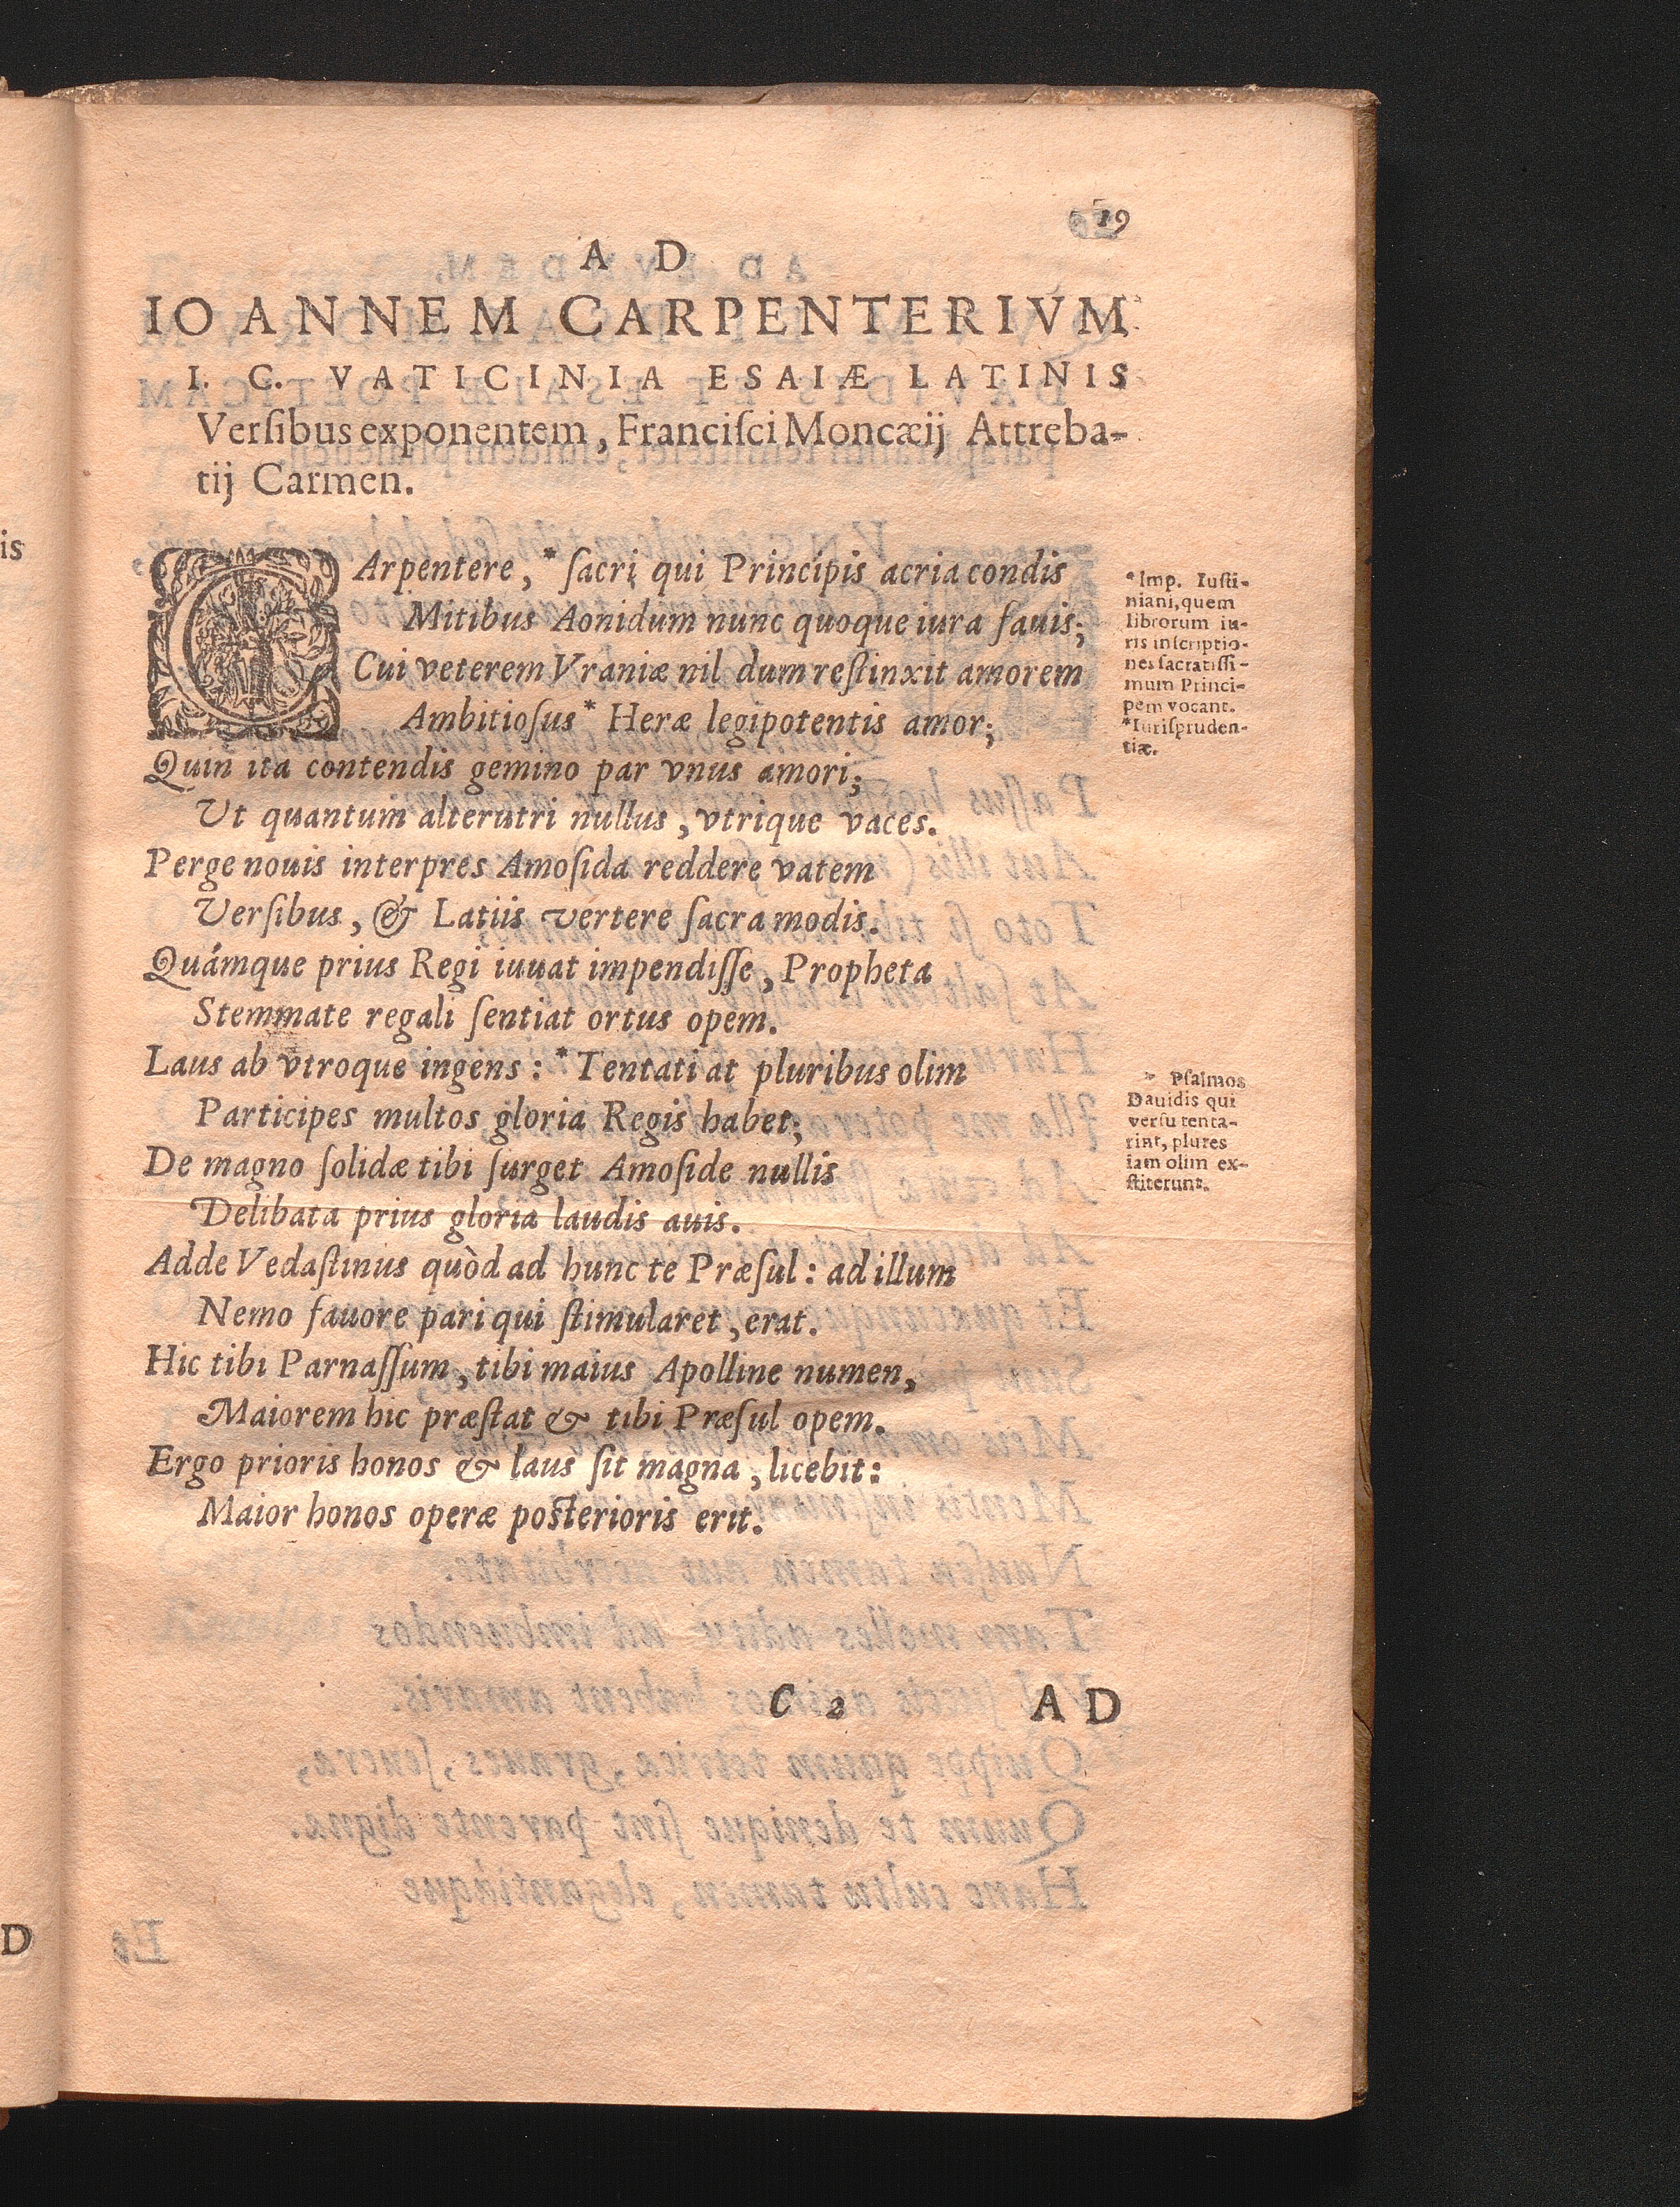 19
A D
IOANNEM CARPENTERIVM
I. C. VATICINIA ESAIÆ LATINIS
Verſibus exponentem, Franciſci Moncæij Attreba-
tij Carmen.
CArpentere, * ſacri qui Principis acria condis
Mitibus Aonidum nunc quoque iura fauis;
Cui veterem Vraniæ nil dum reſtinxit amorem
Ambitioſus * Heræ legipotentis amor;
Quin ita contendis gemino par vnus amori;
Ut quantum alterutri nullus, vtrique vaces.
Perge nouis interpres Amoſida reddere vatem
Verſibus, & Latiis vertere ſacra modis.
Quámque prius Regi iuuat impendiſſe, Propheta
Stemmate regali ſentiat ortus opem.
Laus ab vtroque ingens: * Tentati at pluribus olim
Participes multos gloria Regis habet;
De magno ſolidæ tibi ſurget Amoſide nullis
Delibata prius gloria laudis auis.
Adde Vedaſtinus quòd ad hunc te Præſul: ad illum
Nemo fauore pari qui ſtimularet, erat.
Hic tibi Parnaſſum, tibi maius Apolline numen,
Maiorem hic præſtat & tibi Præſul opem.
Ergo prioris honos & laus ſit magna, licebit:
Maior honos operæ poſterioris erit.
* Imp. Iuſti-
niani, quem
librorum iu-
ris inſcriptio-
nes ſacratiſſi-
mum Princi-
pem vocant.
* Iuriſpruden-
tiæ.
* Pſalmos
Dauidis qui
verſu tenta-
rint, plures
iam olim ex-
ſtiterunt.
C 2
A D
is
D